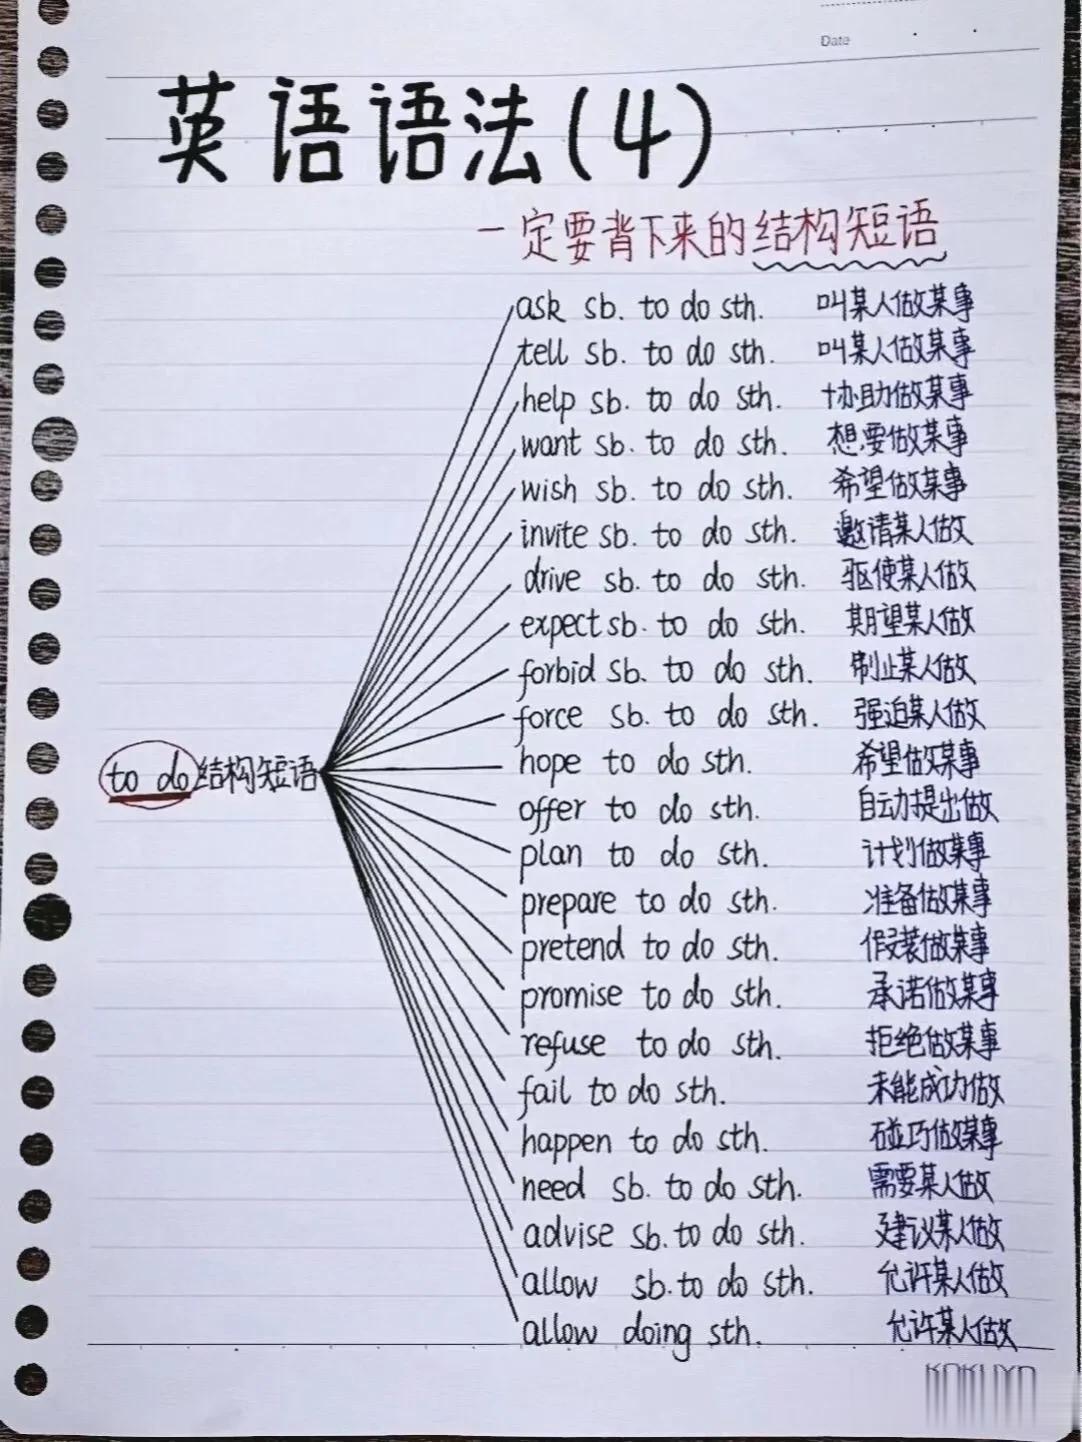 Date
英语语法(4)
一定要背下来的结构短语
ask sb. to do sth. 叫某人做某事
tell sb. to do sth. 叫某人做某事
help sb. to do sth. 协助做某事
want sb. to do sth. 想要做某事
wish sb. to do sth. 希望做某事
invite sb. to do sth. 邀请某人做
drive sb. to do sth. 驱使某人做
expect sb. to do sth. 期望某人做
forbid sb. to do sth. 制止某人做
force sb. to do sth. 强迫某人做
hope to do sth. 希望做某事
to do结构短语
offer to do sth. 自动提出做
plan to do sth. 计划做某事
prepare to do sth. 准备做某事
pretend to do sth. 假装做某事
promise to do sth. 承诺做某事
refuse to do sth. 拒绝做某事
fail to do sth. 未能成功做
happen to do sth. 碰巧做某事
need sb. to do sth. 需要某人做
advise sb. to do sth. 建议某人做
allow sb. to do sth. 允许某人做
allow doing sth. 允许某人做
KOKUYO